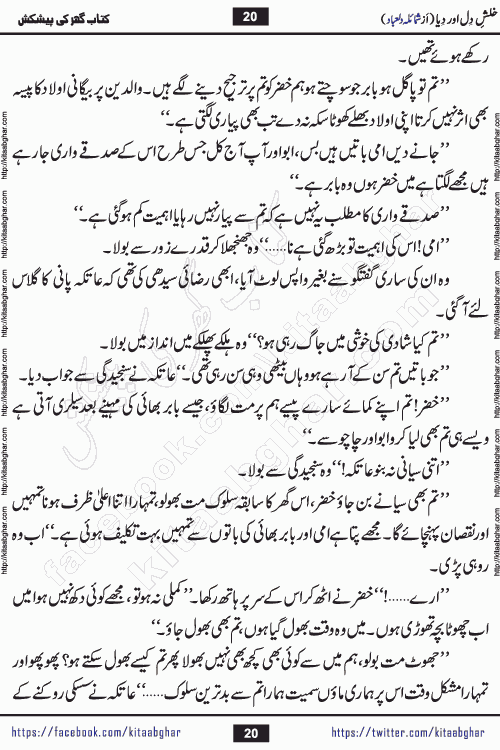 خلشِ دِل اور دِیا (از شمائلہ دلعباد)
20
کتاب گھر کی پیشکش
رکھے ہوئے تھیں۔
’’تم تو پاگل ہو بابر جو سوچتے ہو ہم خضر کو تم پر ترجیح دینے لگے ہیں۔ والدین پر بیگانی اولاد کا پیسہ
بھی اثر نہیں کرتا اپنی اولاد بھلے کھوٹا سکہ نہ دے تب بھی پیاری لگتی ہے۔‘‘
’’جانے دیں امی باتیں ہیں بس، ابو اور آپ آج کل جس طرح اس کے صدقے واری جا رہے
ہیں مجھے لگتا ہے میں خضر ہوں وہ بابر ہے۔‘‘
’’صدقے واری کا مطلب یہ نہیں ہے کہ تم سے پیار نہیں رہا یا اہمیت کم ہو گئی ہے۔‘‘
’’امی! اس کی اہمیت تو بڑھ گئی ہے نا......‘‘ وہ جھنجھلا کر قدرے زور سے بولا۔
وہ ان کی ساری گفتگو سنے بغیر واپس لوٹ آیا، ابھی رضائی سیدھی کی تھی کہ عاتکہ پانی کا گلاس
لئے آ گئی۔
’’تم کیا شادی کی خوشی میں جاگ رہی ہو؟‘‘ وہ ہلکے پھلکے میں انداز میں بولا۔
’’جو باتیں تم سن کے آ رہے ہو وہاں بیٹھی وہی سن رہی تھی۔‘‘ عاتکہ نے سنجیدگی سے جواب دیا۔
’’خضر! تم اپنے کمائے سارے پیسے ہم پر مت لگاؤ، جیسے بابر بھائی کی مہینے بعد سیلری آتی ہے
ویسے ہی تم بھی لیا کرو ابو اور چاچو سے۔‘‘
’’اتنی سیانی نہ بنو عاتکہ!‘‘ وہ سنجیدگی سے بولا۔
’’تم بھی سیانے بن جاؤ خضر، اس گھر کا سابقہ سلوک مت بھولو، تمہارا اتنا اعلیٰ ظرف ہونا تمہیں
اور نقصان پہنچائے گا۔ مجھے پتا ہے امی اور بابر بھائی کی باتوں سے تمہیں بہت تکلیف ہوئی ہے۔‘‘ اب وہ
رو ہی پڑی۔
’’ارے......!‘‘ خضر نے اٹھ کر اس کے سر پر ہاتھ رکھا۔ ’’کملی نہ ہو تو، مجھے کوئی دکھ نہیں ہوا میں
اب چھوٹا بچہ تھوڑی ہوں۔ میں وہ وقت بھول گیا ہوں، تم بھی بھول جاؤ۔‘‘
’’جھوٹ مت بولو، ہم میں سے کوئی بھی کچھ بھی نہیں بھولا پھر تم کیسے بھول سکتے ہو؟ پھوپھو اور
تمہارا مشکل وقت اس پر ہماری ماؤں سمیت ہمارا تم سے بدترین سلوک......‘‘ عاتکہ نے سسکی روکنے کے
http://kitaabghar.com http://kitaabghar.com http://kitaabghar.com http://kitaabghar.com http://kitaabghar.com http://kitaabghar.com
http://kitaabghar.com http://kitaabghar.com http://kitaabghar.com http://kitaabghar.com http://kitaabghar.com http://kitaabghar.com
کتاب گھر کی پیشکش
kitaabghar.com
facebook.com/kitaabghar
https://facebook.com/kitaabghar
20
https://twitter.com/kitaabghar